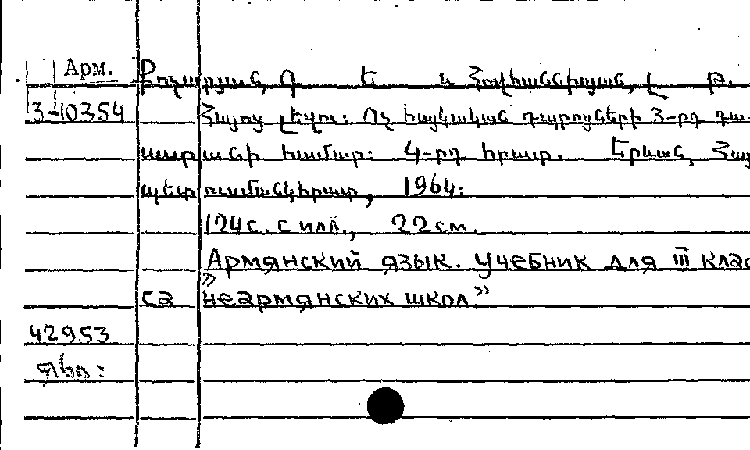 Арм.
Քոչարյան, Գ Ե և Հովհաննիսյան, Լ Թ.
3-10354 Հայոց լեզու: Ոչ հայկական դպրոցների 3-րդ դա
սարանի համար: 4-րդ հրատ. Երևան, Հայ
պետուսմանկհրատ, 1964:
124 с. с илл., 22 см.
Армянский язык. Учебник для III клас
са "неармянских школ."
42953